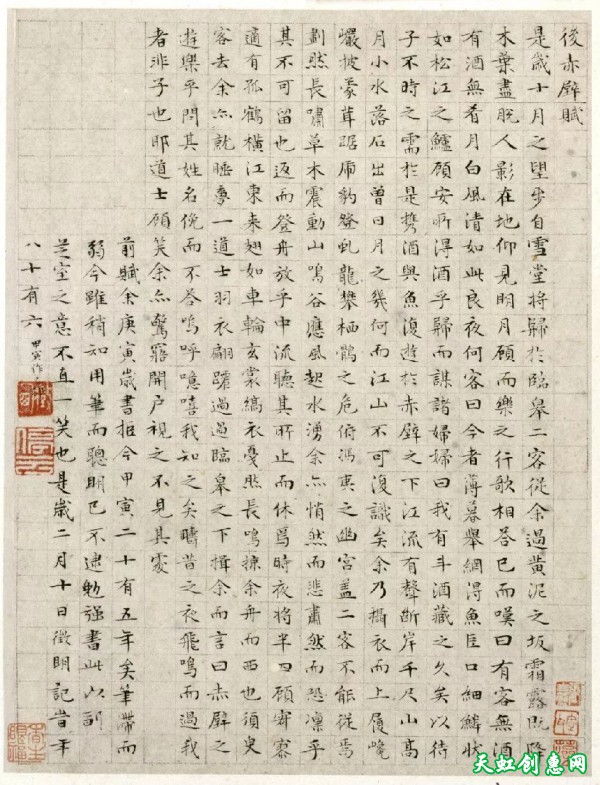 後赤壁賦
是歲十月之望步自雪堂將歸於臨皋二客從余過黃泥之坂霜露既降
木葉盡脫人影在地仰見明月顧而樂之行歌相答已而嘆曰有客無酒
有酒無肴月白風清如此良夜何客曰今者薄暮舉網得魚巨口細鱗狀
如松江之鱸顧安所得酒乎歸而謀諸婦婦曰我有斗酒藏之久矣以待
子不時之需於是攜酒與魚復遊於赤壁之下江流有聲斷岸千尺山高
月小水落石出曾日月之幾何而江山不可復識矣余乃攝衣而上履巉
巖披蒙茸踞虎豹登虬龍攀栖鶻之危俯馮夷之幽宮蓋二客不能從焉
劃然長嘯草木震動山鳴谷應風起水湧余亦悄然而悲肅然而恐凜乎
其不可留也返而登舟放乎中流聽其所止而休焉時夜將半四顧寂寥
適有孤鶴橫江東來翅如車輪玄裳縞衣戛然長鳴掠余舟而西也須臾
客去余亦就睡夢一道士羽衣翩躚過過臨皋之下揖余而言曰赤壁之
遊樂乎問其姓名俛而不答嗚呼噫嘻我知之矣疇昔之夜飛鳴而過我
者非子也耶道士顧笑余亦驚寤開戶視之不見其處
前賦余庚寅歲書拒今甲寅二十有五年矣筆滯而
弱今雖稍知用筆而聰明已不逮勉強書此以副
芝室之意不直一笑也是歲二月十日徵明記旹年
八十有六 甲寅作
天虹创惠网